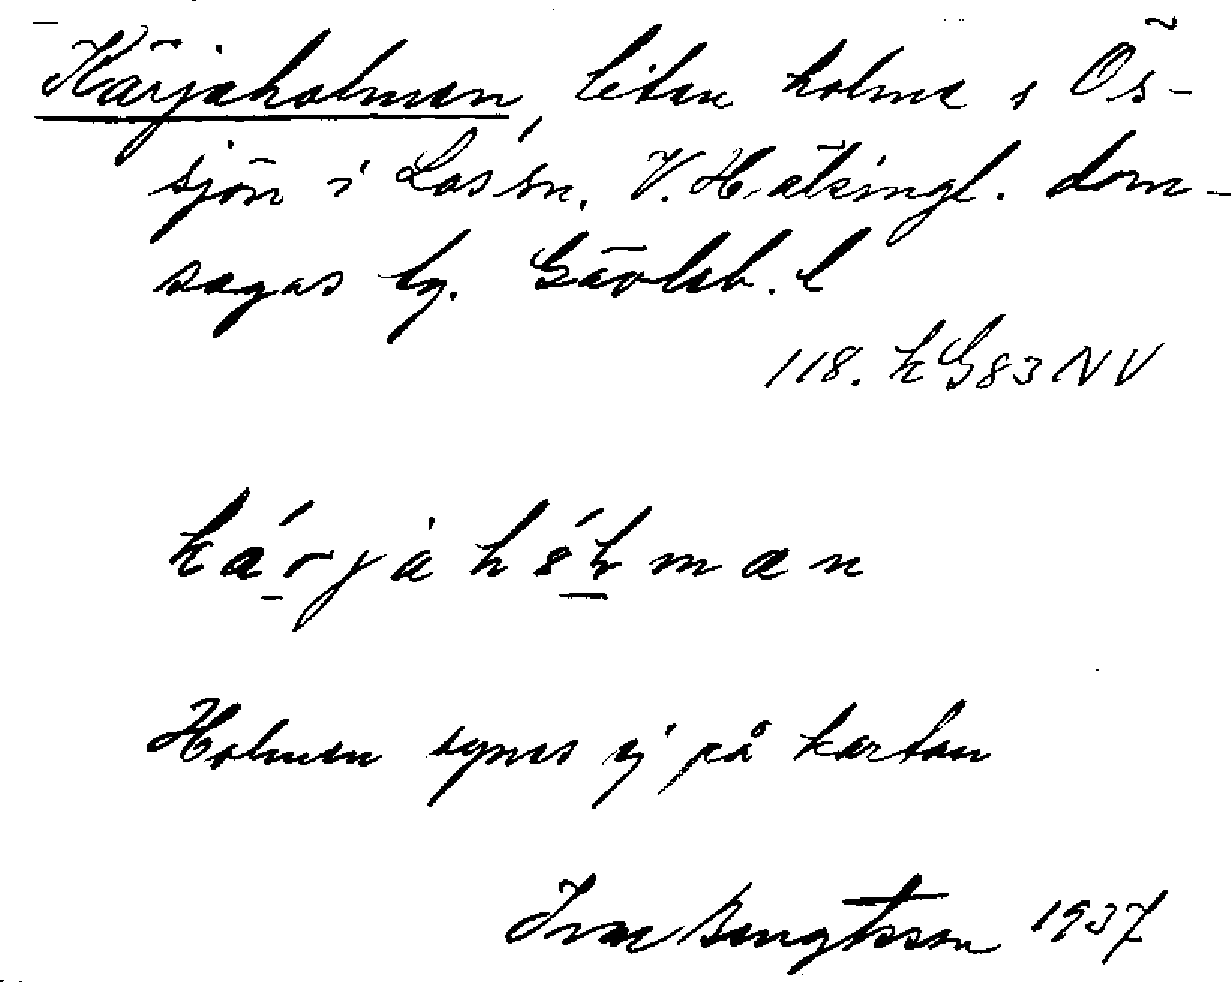 Kärjaholmen, liten holme i Ös-
sjön i Los sn. V. Hälsingl. dom-
sagas tg. Gävleb. l
118. kG83NV
kárjàhólman
Holmen synes ej på kartan
Ivar Bengtsson 1937